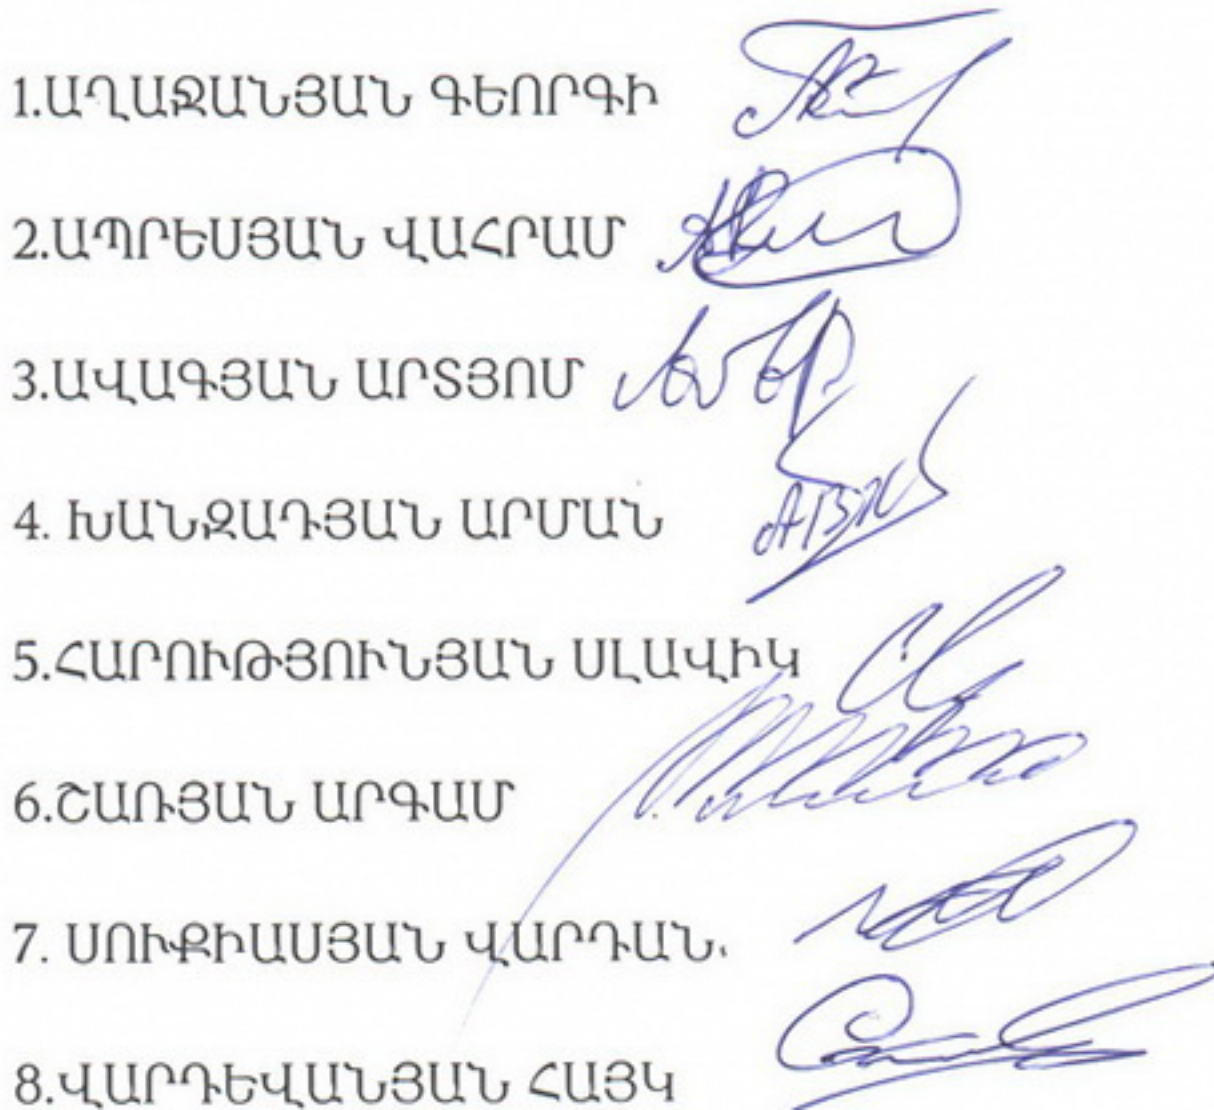 1.ԱՂԱՋԱՆՅԱՆ ԳԵՈՐԳԻ
2.ԱՊՐԵՍՅԱՆ ՎԱՀՐԱՄ
3.ԱՎԱԳՅԱՆ ԱՐՏՅՈՄ
4. ԽԱՆԶԱԴՅԱՆ ԱՐՄԱՆ
5.ՀԱՐՈՒԹՅՈՒՆՅԱՆ ՍԼԱՎԻԿ
6.ՇԱՌՅԱՆ ԱՐԳԱՄ
7. ՍՈՒՔԻԱՍՅԱՆ ՎԱՐԴԱՆ
8.ՎԱՐԴԵՎԱՆՅԱՆ ՀԱՅԿ